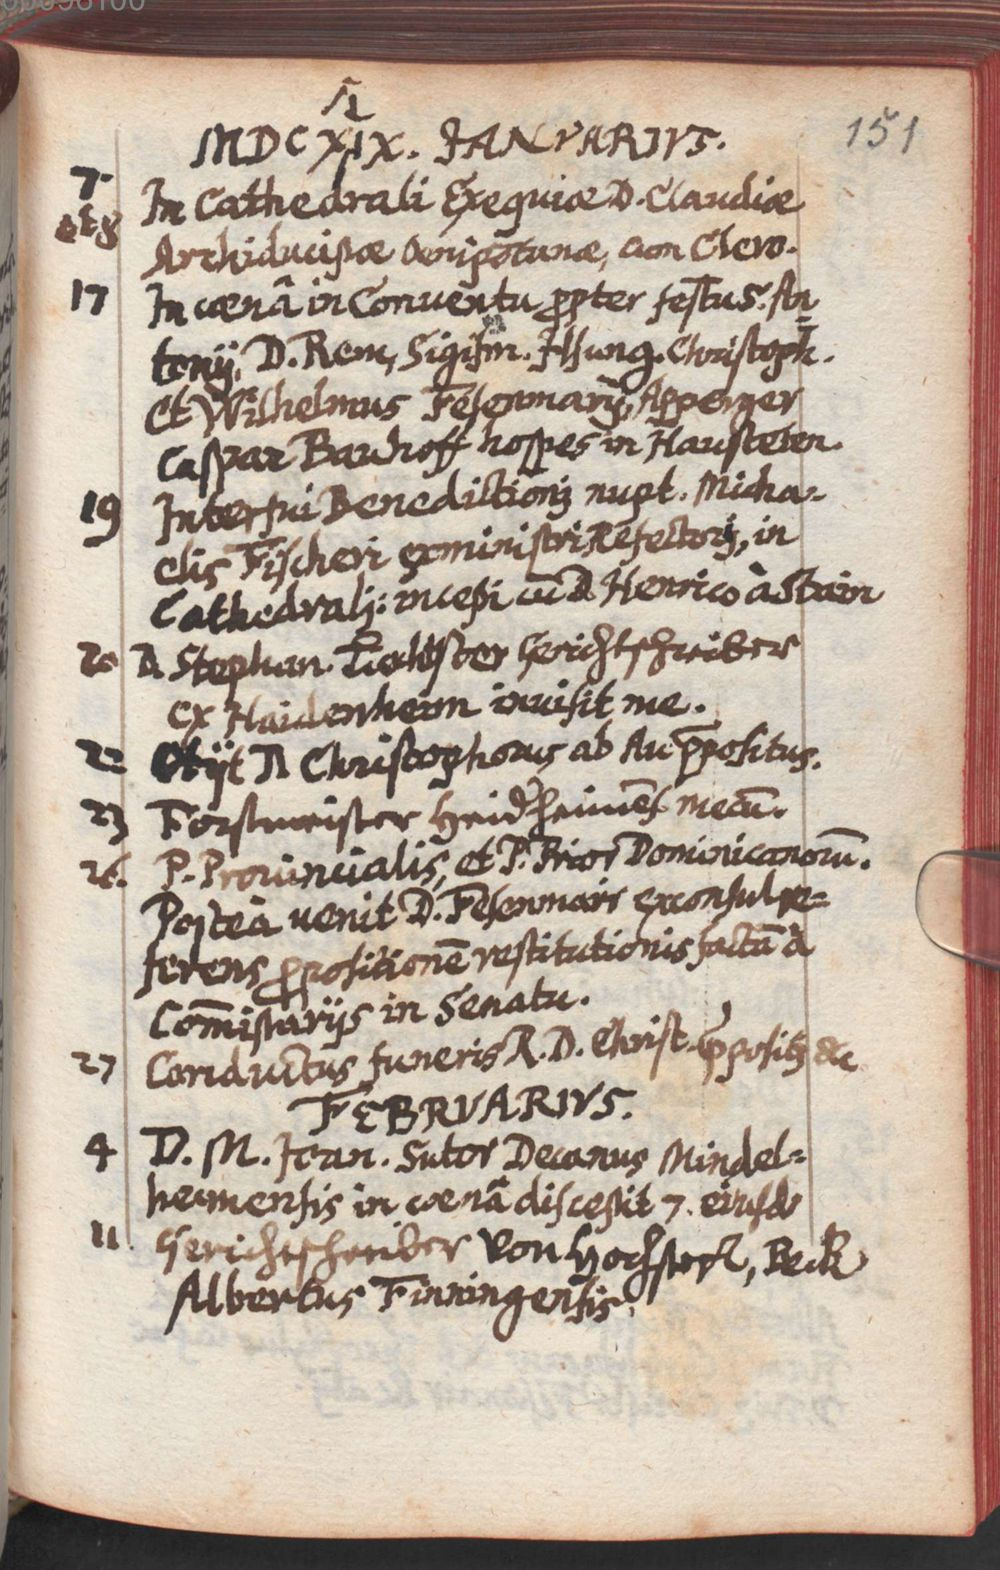 MDCXIX. JANVARIVS.
151
7. et 8 In Cathedrali Exequiæ D. Claudiæ
Archiducissæ Oenipotanæ, cum Clero.
17 In cœnâ in Conventu ꝓpter festũ S. An
tonij, D. Rem, Sigism. Ilsung. Christoph.
Et Wilhelmus Fesenmarij, Apperger
Caspar Bauhoff hospes in Hausteten.
19 Interfui Benedictionj nupt. Micha-
elis Fischeri exministri Refectorij, in
Cathedralj: incessi cũ D. Henrico à Stain
20 D. Stephan. Gerichtschreiber
ex Haidenheim inuisit me.
22 Obijt D Christophorus ab Au p̄positus.
23 Forstmeister Heidẽheimẽs mecũ.
26. P. Prouincialis, et P. Prior Dominicanorũ.
Posteà uenit D. Fesenmair exconsul re=
ferens ꝓpositionẽ restitutionis factã à
Com̃issarijs in Senatu.
27 Conductus funeris R. D. Christ. p̄positj &c
FEBRVARIVS.
4 D. M. Joan. Sutor Decanus Mindel=
heimensis in cœnâ discessit 7. eiusd
11. Gerichtschreiber von Hochstett, Beck
Albertus Finningensis.